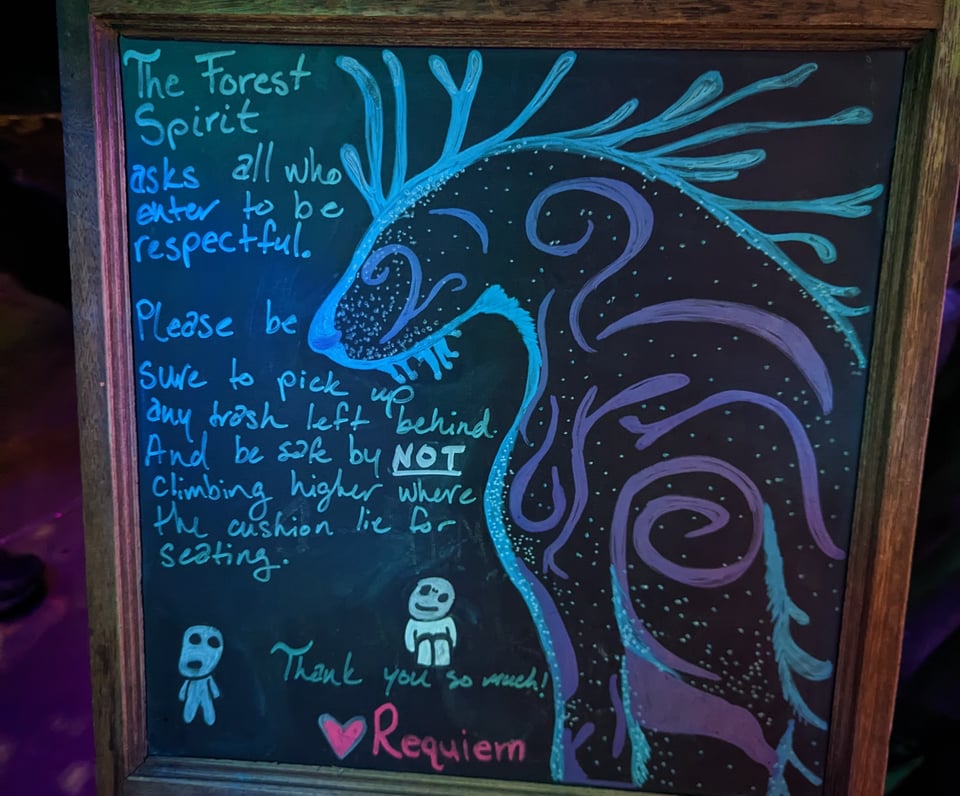 The Forest
Spirit
asks all who
enter to be
respectful.
Please be
sure to pick up
any trash left behind.
And be safe by NOT
climbing higher where
the cushion lie for
seating.
Thank you so much!
Requiem